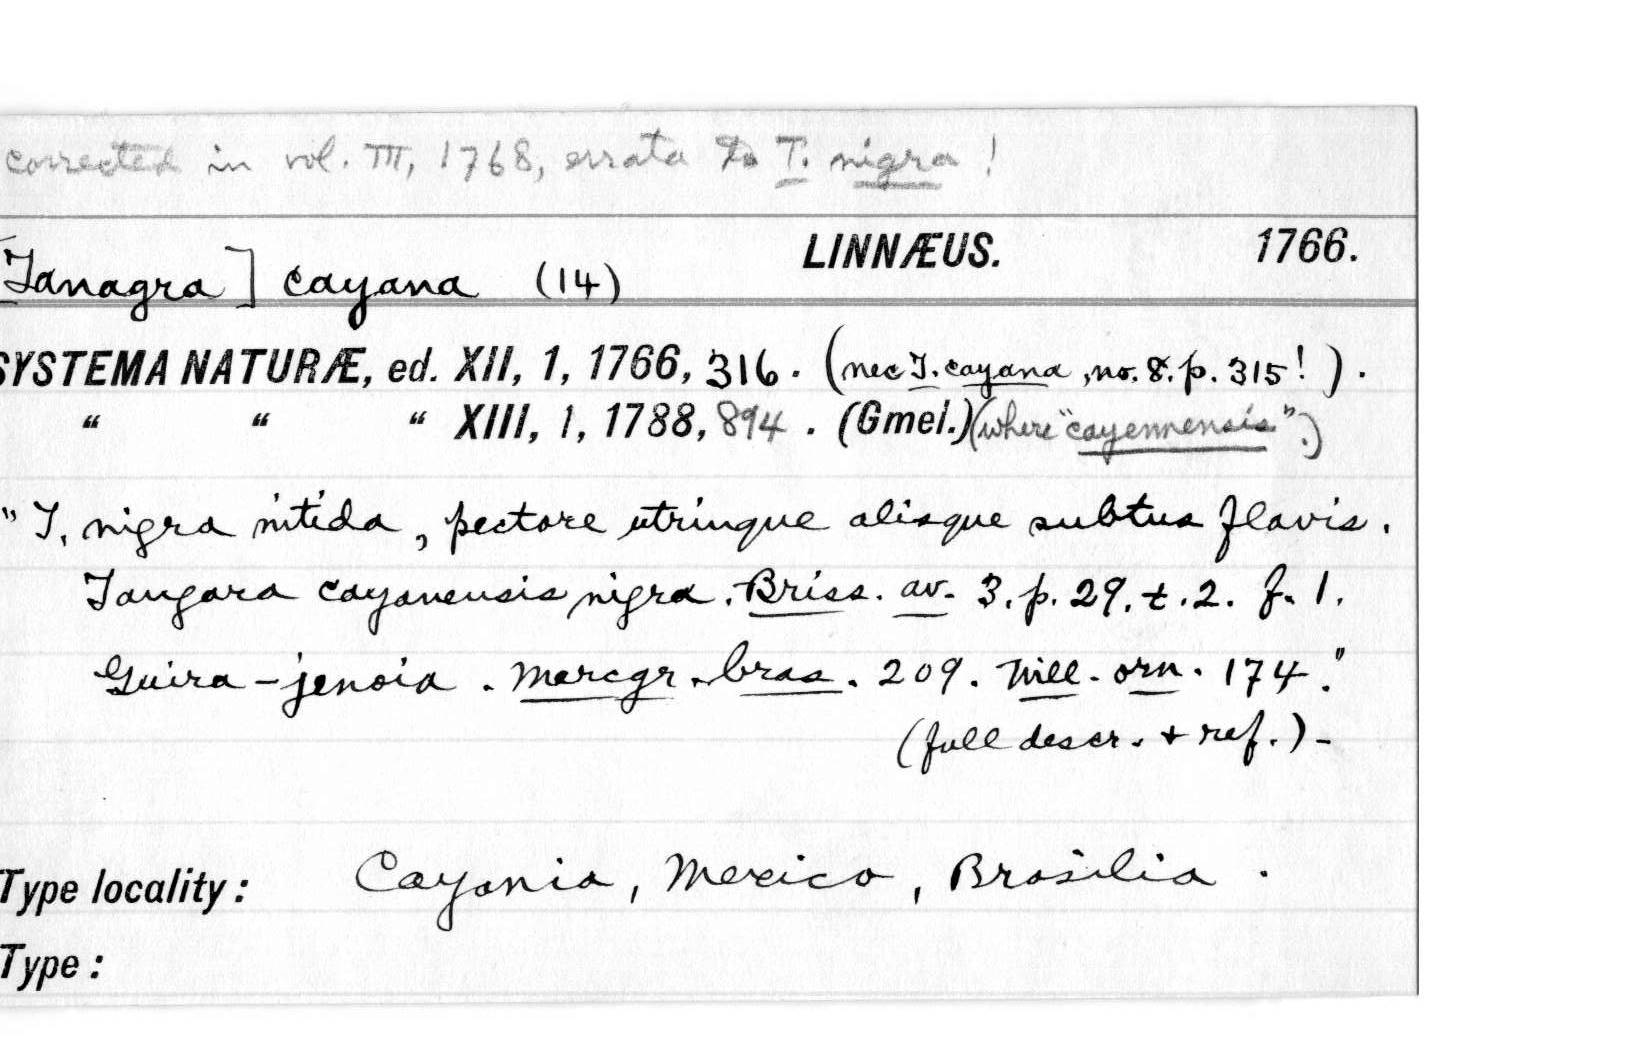 corrected in vol. III, 1768, errata to T. nigra !
LINNÆUS. 1766.
[Tanagra] cayana (14)
SYSTEMA NATURÆ, ed. XII, 1, 1766, 316. (nec T. cayana, no. 8. p. 315! ).
“ “ “ XIII, 1, 1788, 894. (Gmel.) (where "cayennensis".)
" T. nigra nitida, pectore utrinque alisque subtus flavis.
Tangara cayanensis nigra. Briss. av. 3. p. 29. t. 2. f. 1.
Guira-jenoia. Marcgr. bras. 209. Will. orn. 174."
(full descr. + ref.) -
Type locality: Cayania, Mexico, Brasilia.
Type: